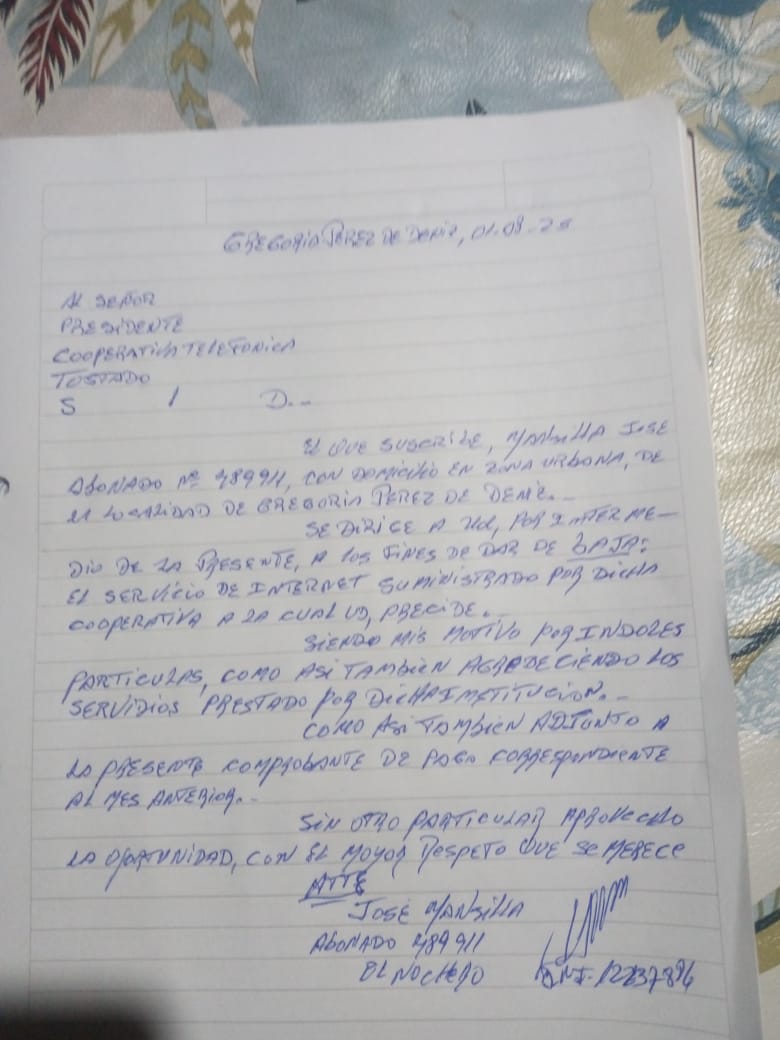 GREGORIA PEREZ DE DENIZ, 01-08-25
AL SEÑOR
PRESIDENTE
COOPERATIVA TELEFONICA
TOSTADO
S / D.--
EL QUE SUSCRIBE, MANSILLA JOSE
ABONADO Nº 489911, CON DOMICILIO EN ZONA URBANA, DE
LA LOCALIDAD DE GREGORIA PEREZ DE DENIZ.--
SE DIRIGE A UD, POR INTERME-
DIO DE LA PRESENTE, A LOS FINES DE DAR DE BAJA:
EL SERVICIO DE INTERNET SUMINISTRADO POR DICHA
COOPERATIVA A LA CUAL UD, PRECIDE.--
SIENDO MIS MOTIVO POR INDOLES
PARTICULAS, COMO ASI TAMBIEN AGRADECIENDO LOS
SERVIDIOS PRESTADO POR DICHA INSTITUCION.--
COMO ASI TAMBIEN ADJUNTO A
LA PRESENTE COMPROBANTE DE PAGO CORRESPONDIENTE
AL MES ANTERIOR.--
SIN OTRO PARTICULAR APROVECHO
LA OPORTUNIDAD, CON EL MAYOR RESPETO QUE SE MERECE
ATTE
JOSÉ MANSILLA
ABONADO 489911
EL NOCHERO D.N.I.